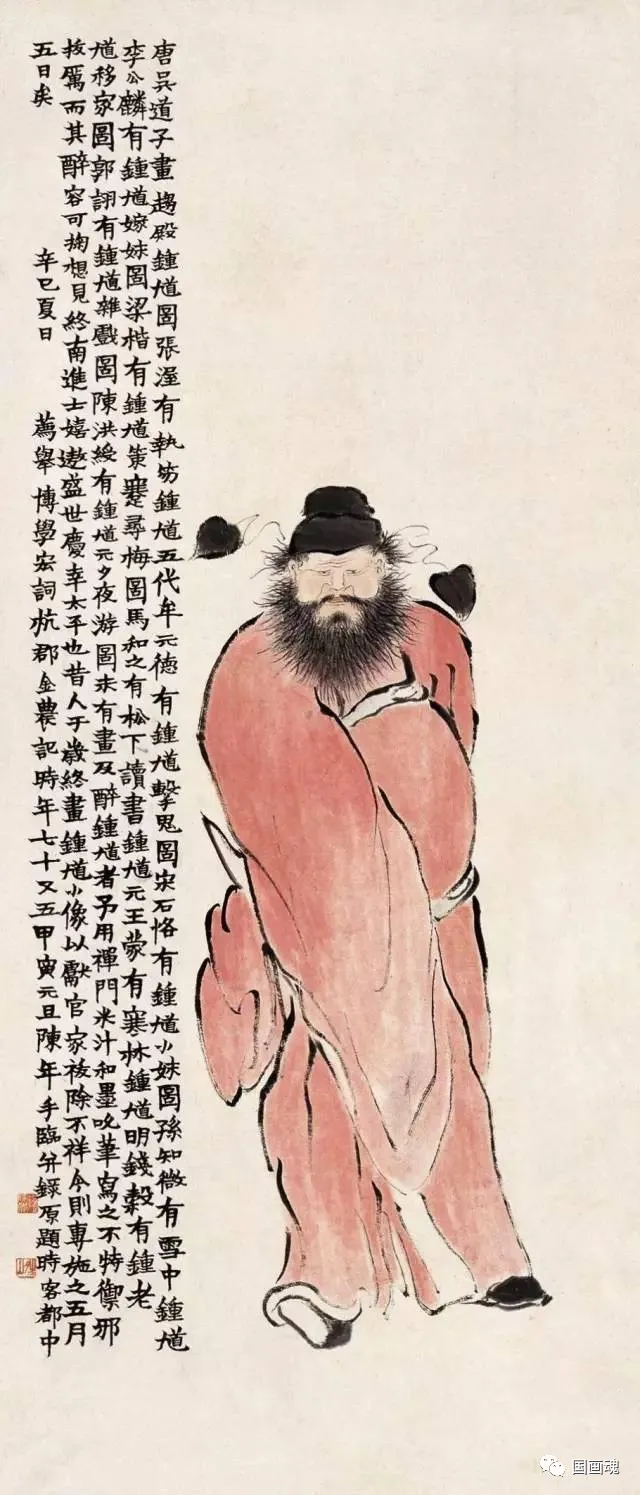 唐吳道子畫趨殿鍾馗圖張渥有執笏鍾馗五代牟元德有鍾馗擊鬼圖宋石恪有鍾馗小妹圖孫知微有雪中鍾馗
李公麟有鍾馗嫁妹圖梁楷有鍾馗策蹇尋梅圖馬和之有松下讀書鍾馗元王蒙有寒林鍾馗明錢榖有鍾老
馗移家圖郭詡有鍾馗雜戲圖陳洪綬有鍾馗元夕夜游圖未有畫及醉鍾馗者予用禪門米汁和墨吮筆寫之不特禦邪
拔厲而其醉容可掬想見終南進士嬉遨盛世慶幸太平也昔人于歲終畫鍾馗小像以獻官家祓除不祥今則專施之五月
五日矣 辛巳夏日 薦舉博學宏詞杭郡金農記時年七十又五甲寅元旦陳年手臨并錄原題時客都中
国画魂